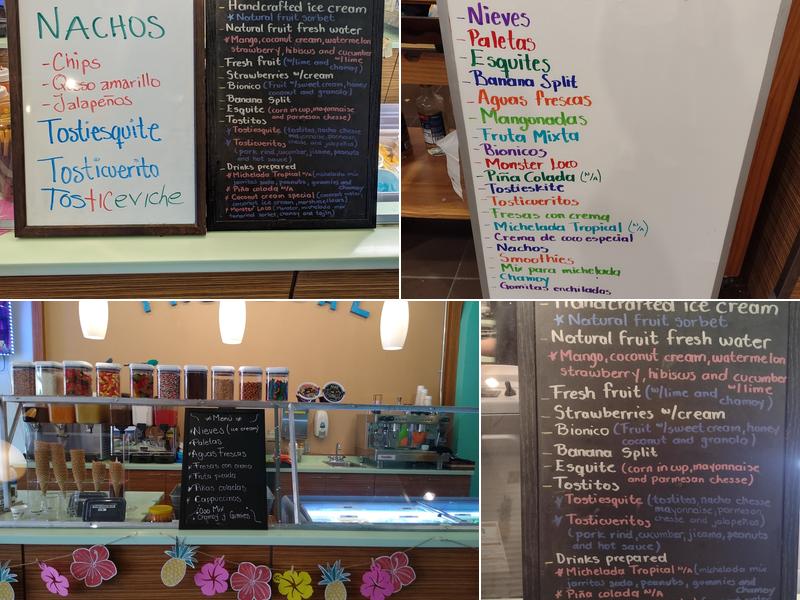 NACHOS
-Chips
-Queso amarillo
-Jalapeños
Tostiesquite
Tosticuerito
Tosticeviche
Handcrafted ice cream
* Natural fruit sorbet
-Natural fruit fresh water
* Mango, coconut cream, watermelon
strawberry, hibiscus and cucumber
-Fresh fruit (w/lime and chamoy) w/lime
-Strawberries w/cream
-Bionico (Fruit w/sweet cream, honey
coconut and granola)
-Banana Split
-Esquite (corn in cup, mayonnaise
and parmesan chesse)
-Tostitos
* Tostiesquite (tostitos, nacho chesse
mayonnaise, parmesan
* Tosticueritos chesse and jalapeños)
(pork rind, cucumber, jicama, peanuts
and hot sauce)
-Drinks prepared
* Michelada Tropical N/A (michelada mix
jarritos soda, peanuts, gummies and
chamoy)
* Piña colada N/A
* Coconut cream special
* Monster Loco (Monster, michelada mix
tamarind sorbet, chamoy and tajin)
- Nieves
- Paletas
- Esquites
- Banana Split
- Aguas frescas
- Mangonadas
- Fruta Mixta
- Bionicos
- Monster Loco
- Piña Colada (N/A)
- Tostieskite
- Tosticueritos
- Fresas con crema
- Michelada Tropical (N/A)
- Crema de coco especial
- Nachos
- Smoothies
- Mix para michelada
- Chamoy
- Gomitas enchiladas
Menú
Nieves (ice cream)
Paletas
Aguas frescas
Fresas con crema
Fruta picada
Piñas coladas
Cappuccinos
Chamoy y Gummies
- Handcrafted ice cream
* Natural fruit sorbet
- Natural fruit fresh water
* Mango, coconut cream, watermelon
strawberry, hibiscus and cucumber
- Fresh fruit (w/lime and chamoy) w/lime
- Strawberries w/cream
- Bionico (Fruit w/sweet cream, honey
coconut and granola)
- Banana Split
- Esquite (corn in cup, mayonnaise
and parmesan chesse)
- Tostitos
* Tostiesquite (tostitos, nacho chesse
mayonnaise, parmesan
* Tosticueritos chesse and jalapeños)
(pork rind, cucumber, jicama, peanuts
and hot sauce)
- Drinks prepared
* Michelada Tropical N/A (michelada mix
jarritos soda, peanuts, gummies and
chamoy
* Piña colada N/A